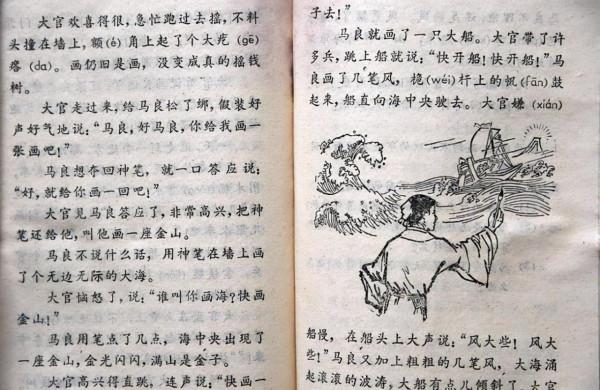 大官欢喜得很，急忙跑过去摇，不料
头撞在墙上，额(é)角上起了个大疙(gē)
瘩(da)。画仍旧是画，没变成真的摇钱
树。
大官走过来，给马良松了绑，假装好
声好气地说：“马良，好马良，你给我画一
张画吧！”
马良想夺回神笔，就一口答应说：
“好，就给你画一回吧！”
大官见马良答应了，非常高兴，把神
笔还给他，叫他画一座金山。
马良不说什么话，用神笔在墙上画
了个无边无际的大海。
大官恼怒了，说：“谁叫你画海？快画
金山！”
马良用笔点了几点，海中央出现了
一座金山，金光闪闪，满山是金子。
大官高兴得直跳，连声说：“快画一
子去！”
马良就画了一只大船。大官带了许
多兵，跳上船就说：“快开船！快开船！”马
良画了几笔风，桅(wéi)杆上的帆(fān)鼓
起来，船直向海中央驶去。大官嫌(xián)
船慢，在船头上大声说：“风大些！风大
些！”马良又加上粗粗的几笔风，大海涌
起滚滚的波涛，大船有点儿倾斜了。大官